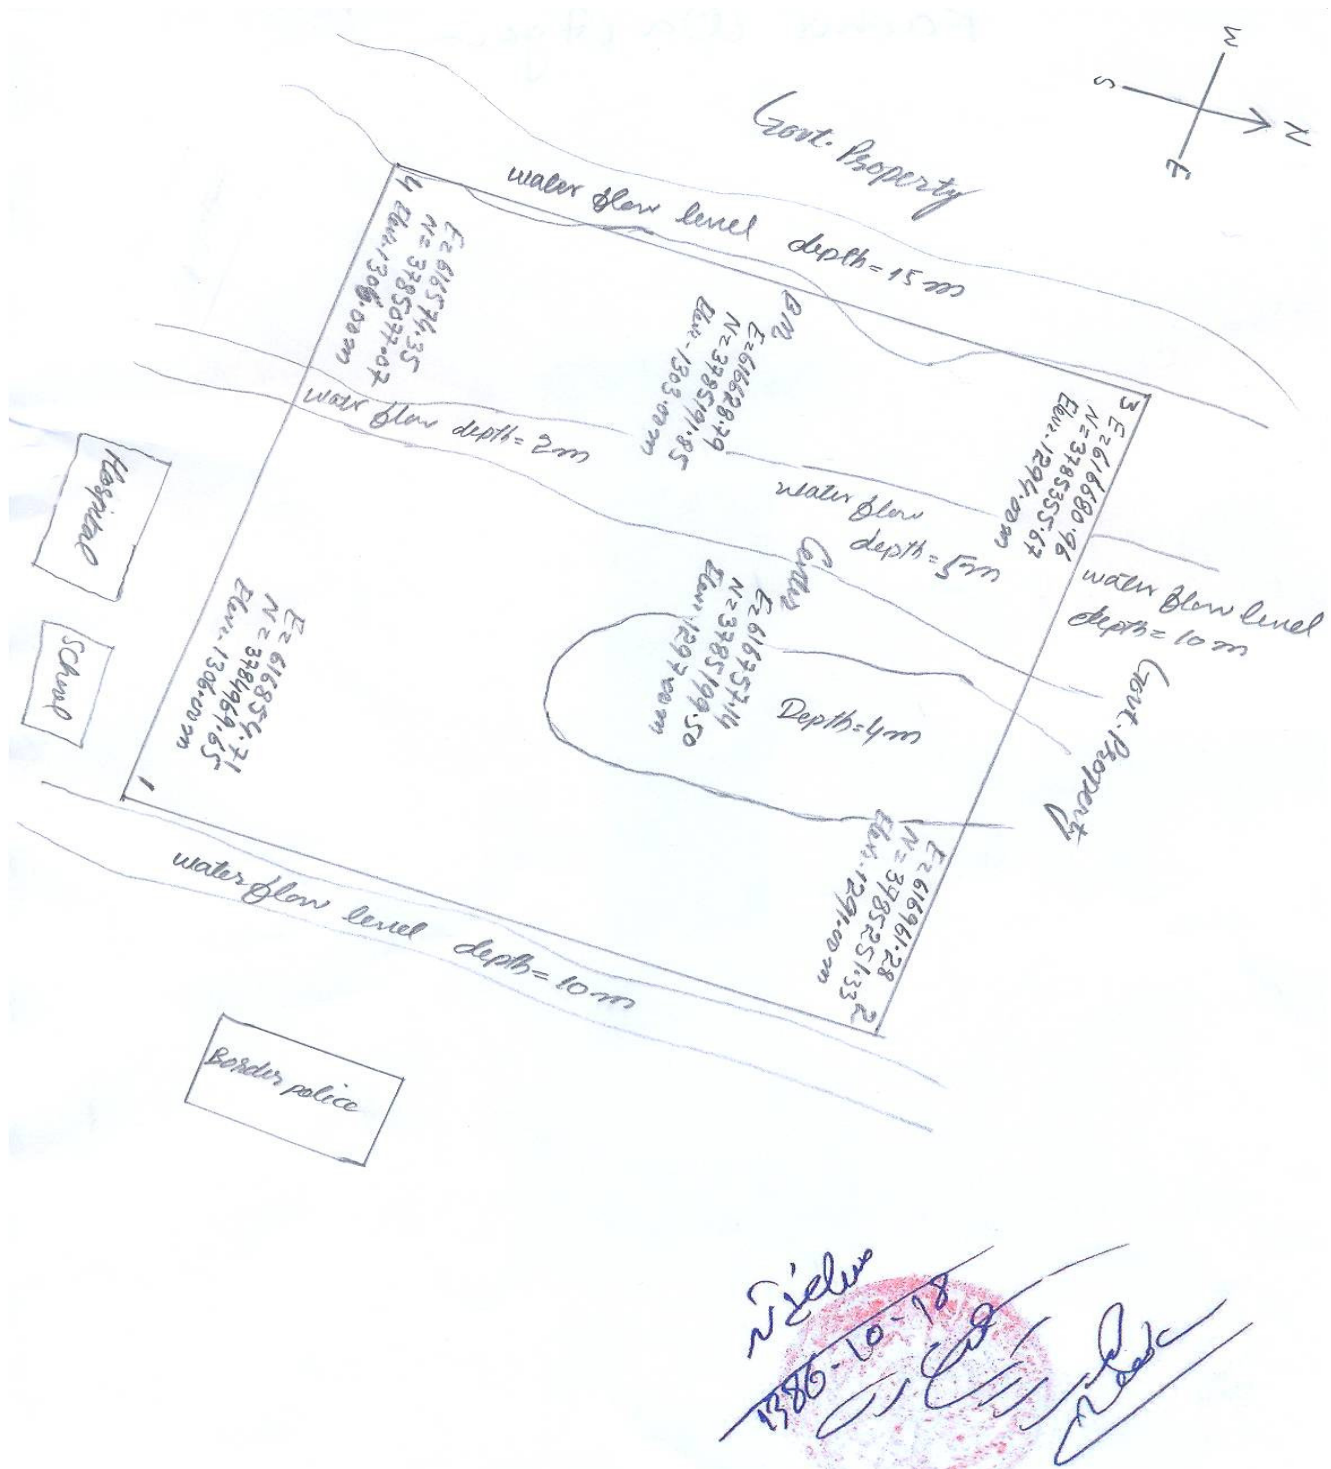 W
S
N
E
Govt. Property
water flow level depth = 15 m
4
E = 616574.35
N = 3785077.07
Elev. 1306.00 m
BM
E = 616628.79
N = 3785191.85
Elev. - 1303.00 m
3
E = 616680.96
N = 3785355.67
Elev. - 1294.00 m
water flow depth = 2 m
water flow
depth = 5 m
water flow level
depth = 10 m
Govt. Property
Hospital
School
Center
E = 616757.14
N = 3785199.50
Elev. 1297.00 m
Depth = 4 m
E = 616854.71
N = 3784969.65
Elev. - 1306.00 m
1
E = 616961.28
N = 3785251.33
Elev. 1291.00 m
2
water flow level depth = 10 m
Border police
1386-10-18